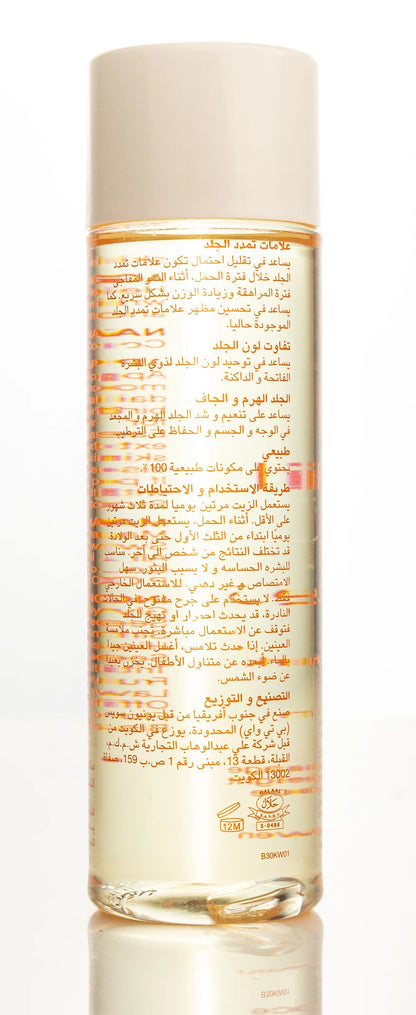 علامات تمدد الجلد
يساعد في تقليل احتمال تكون علامات تمدد
الجلد خلال فترة الحمل، أثناء النمو المفاجئ
فترة المراهقة وزيادة الوزن بشكل سريع. كما
يساعد في تحسين مظهر علامات تمدد الجلد
الموجودة حاليا.
تفاوت لون الجلد
يساعد في توحيد لون الجلد لذوي البشرة
الفاتحة و الداكنة.
الجلد الهرم و الجاف
يساعد على تنعيم و شد الجلد الهرم و المجعد
في الوجه و الجسم و الحفاظ على الترطيب
طبيعي
يحتوي على مكونات طبيعية 100%.
طريقة الاستخدام و الاحتياطات
يستعمل الزيت مرتين يوميا لمدة ثلاث شهور
على الأقل. أثناء الحمل، يستعمل الزيت مرتين
يوميا ابتداء من الثلث الأول حتى بعد الولادة.
قد تختلف النتائج من شخص الى آخر. مناسب
للبشره الحساسه و لا يسبب البثور. سهل
الامتصاص و غير دهني. للاستعمال الخارجي
فقط. لا يستخدم على جرح مفتوح في الحالات
النادرة، قد يحدث احمرار أو تهيج الجلد
فتوقف عن الاستعمال مباشرة. يجنب ملامسة
العينين. إذا حدث تلامس، أغسل العينين جيدا
بالماء. أبعده عن متناول الأطفال. يخزن بعيدا
عن ضوء الشمس.
التصنيع و التوزيع
صنع في جنوب أفريقيا من قبل يونيون سويس
(بي تي واي) المحدودة. يوزع في الكويت من
قبل شركة علي عبدالوهاب التجارية ش.م.ك.م،
القبلة، قطعة 13، مبنى رقم 1 ص.ب 159، صفاة
13002 الكويت
HALAAL
حلال
S-0486
12M
B30KW01